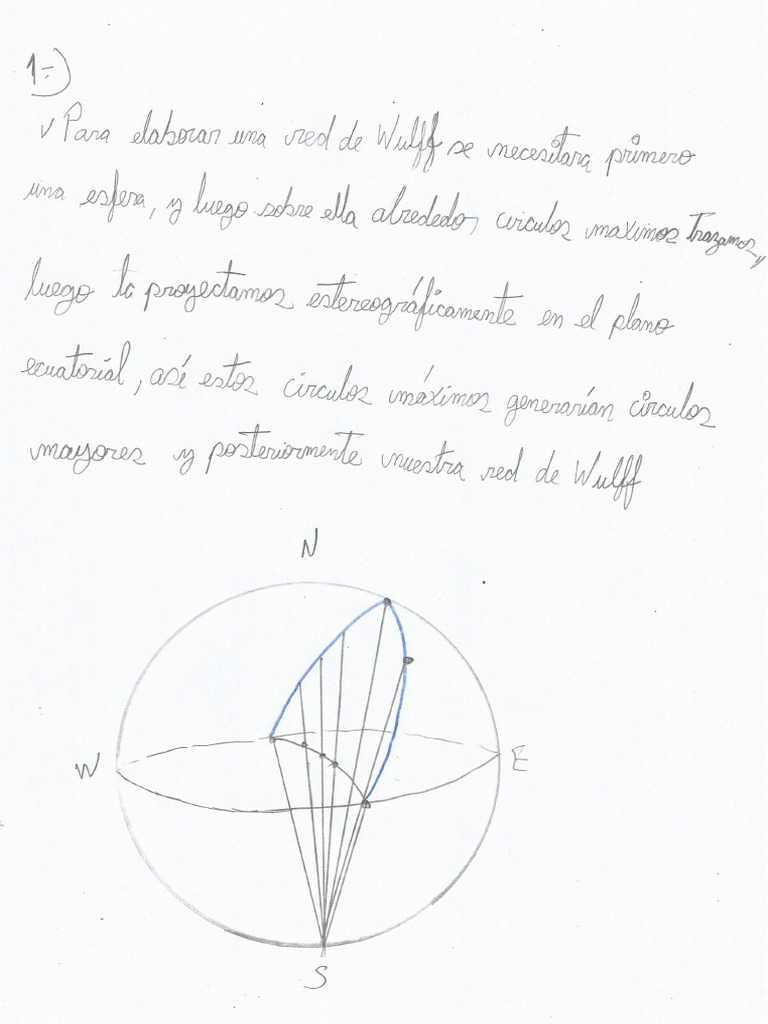 1-)
✓ Para elaborar una red de Wulff se necesitara primero
una esfera, y luego sobre ella alrededor circulos maximos Trazamos,,
luego lo proyectamos estereográficamente en el plano
ecuatorial, asé estos circulos máximos generarían circulos
mayores y posteriormente nuestra red de Wulff
N
W
E
S